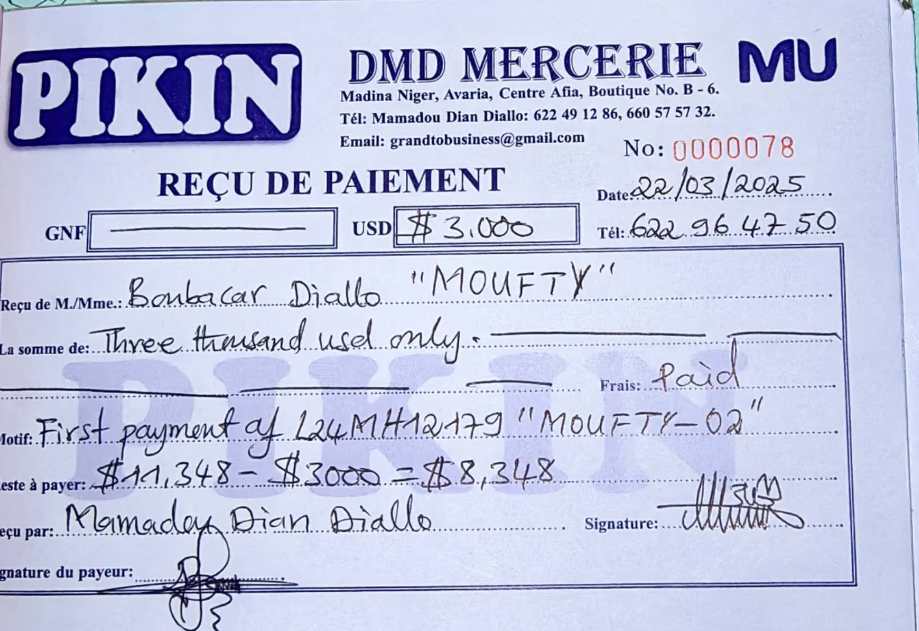 PIKIN
DMD MERCERIE
MU
Madina Niger, Avaria, Centre Afia, Boutique No. B - 6.
Tél: Mamadou Dian Diallo: 622 49 12 86, 660 57 57 32.
Email: grandtobusiness@gmail.com
No: 0000078
REÇU DE PAIEMENT
Date 22/03/2025
GNF
USD $ 3.000
Tél: 622 96 47 50
Reçu de M./Mme.: Boubacar Diallo "MOUFTY"
La somme de: Three thousand usd only.
Frais: Paid
Motif: First payment of L24MH12179 "MOUFTY-02"
este à payer: $11,348 - $3000 = $8,348
eçu par: Mamadou Dian Diallo
Signature:
gnature du payeur:
PIKIN